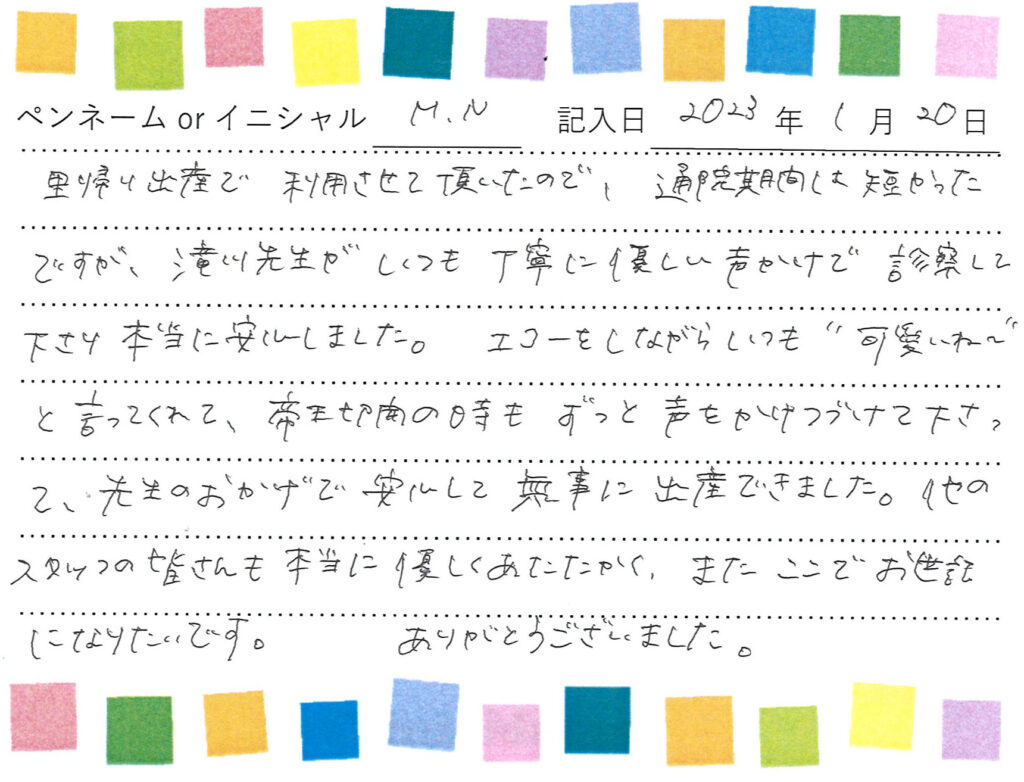 ペンネーム or イニシャル M.N 記入日 2023年1月20日
里帰り出産で 利用させて頂いたので、通院期間は短かった
ですが、滝川先生が いつも 丁寧に優しい声かけで 診察して
下さり 本当に安心しました。 エコーをしながらいつも "可愛いね〜"
と言ってくれて、帝王切開の時も ずっと 声をかけつづけて下さっ
て、先生のおかげで 安心して 無事に 出産できました。他の
スタッフの皆さんも 本当に 優しくあたたかく、また ここで お世話
になりたいです。 ありがとうございました。